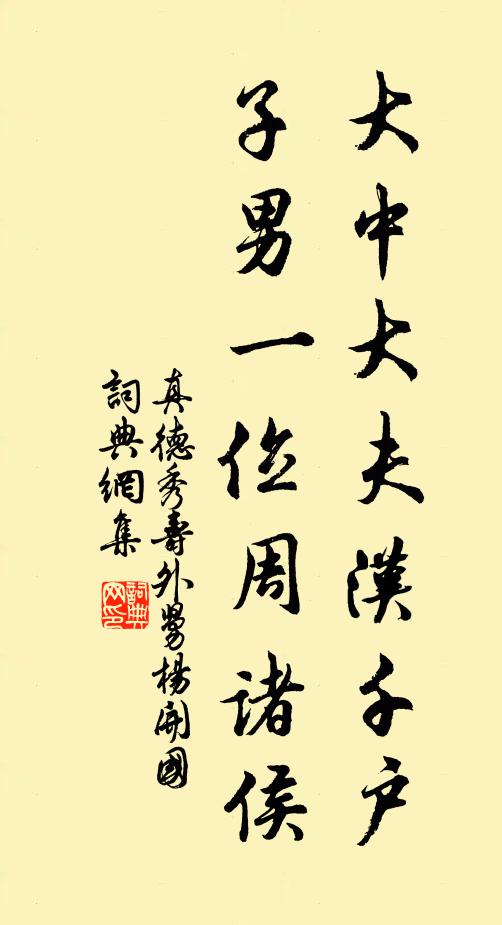 大中大夫漢千戶
子男一位周諸侯
真德秀壽外舅楊開國
詞典網集
詞典網印